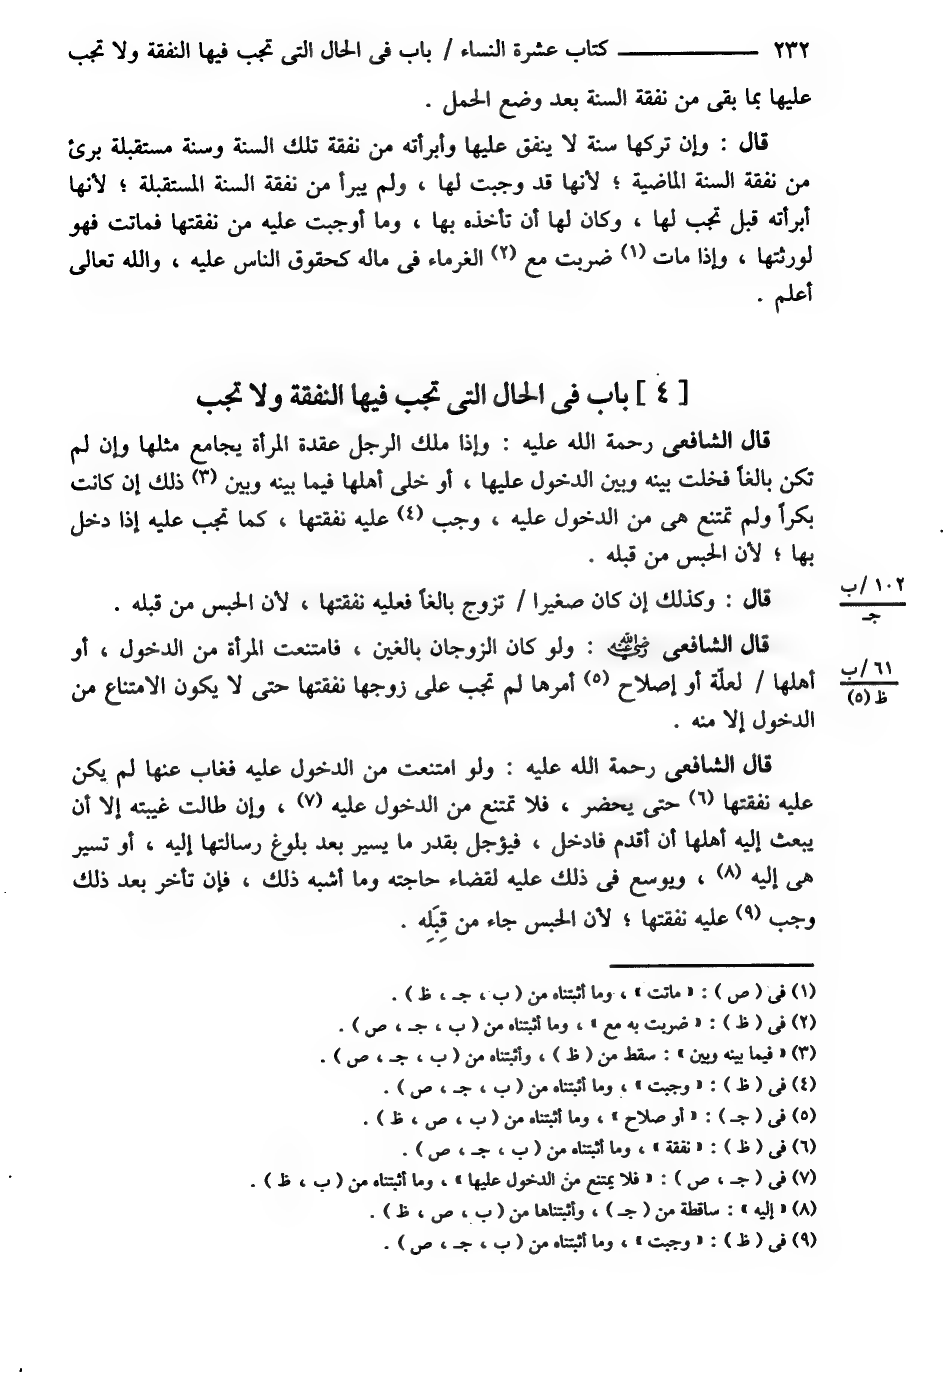 ٢٣٢ ــــــــــ كتاب عشرة النساء / باب فى الحال التى تجب فيها النفقة ولا تجب
عليها بما بقى من نفقة السنة بعد وضع الحمل .
قال : وإن تركها سنة لا ينفق عليها وأبرأته من نفقة تلك السنة وسنة مستقبلة برئ
من نفقة السنة الماضية ؛ لأنها قد وجبت لها ، ولم يبرأ من نفقة السنة المستقبلة ؛ لأنها
أبرأته قبل تجب لها ، وكان لها أن تأخذه بها ، وما أوجبت عليه من نفقتها فماتت فهو
لورثتها ، وإذا مات (١) ضربت مع (٢) الغرماء فى ماله كحقوق الناس عليه ، والله تعالى
أعلم .
[ ٤ ] باب فى الحال التى تجب فيها النفقة ولا تجب
قال الشافعى رحمة الله عليه : وإذا ملك الرجل عقدة المرأة يجامع مثلها وإن لم
تكن بالغاً فخلت بينه وبين الدخول عليها ، أو خلى أهلها فيما بينه وبين (٣) ذلك إن كانت
بكراً ولم تمتنع هى من الدخول عليه ، وجب (٤) عليه نفقتها ، كما تجب عليه إذا دخل
بها ؛ لأن الحبس من قبله .
١٠٢ /ب
جـ
قال : وكذلك إن كان صغيرا / تزوج بالغاً فعليه نفقتها ، لأن الحبس من قبله .
قال الشافعى رضي الله عنه : ولو كان الزوجان بالغين ، فامتنعت المرأة من الدخول ، أو
٦١ /ب
ظ (٥)
أهلها / لعلّة أو إصلاح (٥) أمرها لم تجب على زوجها نفقتها حتى لا يكون الامتناع من
الدخول إلا منه .
قال الشافعى رحمة الله عليه : ولو امتنعت من الدخول عليه فغاب عنها لم يكن
عليه نفقتها (٦) حتى يحضر ، فلا تمتنع من الدخول عليه (٧) ، وإن طالت غيبته إلا أن
يبعث إليه أهلها أن أقدم فادخل ، فيؤجل بقدر ما يسير بعد بلوغ رسالتها إليه ، أو تسير
هى إليه (٨) ، ويوسع فى ذلك عليه لقضاء حاجته وما أشبه ذلك ، فإن تأخر بعد ذلك
وجب (٩) عليه نفقتها ؛ لأن الحبس جاء من قِبَلِه .
(١) فى ( ص ) : « ماتت » ، وما أثبتناه من ( ب ، جـ ، ظ ) .
(٢) فى ( ظ ) : « ضربت به مع » ، وما أثبتناه من ( ب ، جـ ، ص ) .
(٣) « فيما بينه وبين » : سقط من ( ظ ) ، وأثبتناه من ( ب ، جـ ، ص ) .
(٤) فى ( ظ ) : « وجبت » ، وما أثبتناه من ( ب ، جـ ، ص ) .
(٥) فى ( جـ ) : « أو صلاح » ، وما أثبتناه من ( ب ، ص ، ظ ) .
(٦) فى ( ظ ) : « نفقة » ، وما أثبتناه من ( ب ، جـ ، ص ) .
(٧) فى ( جـ ، ص ) : « فلا يمتنع من الدخول عليها » ، وما أثبتناه من ( ب ، ظ ) .
(٨) « إليه » : ساقطة من ( جـ ) ، وأثبتناها من ( ب ، ص ، ظ ) .
(٩) فى ( ظ ) : « وجبت » ، وما أثبتناه من ( ب ، جـ ، ص ) .